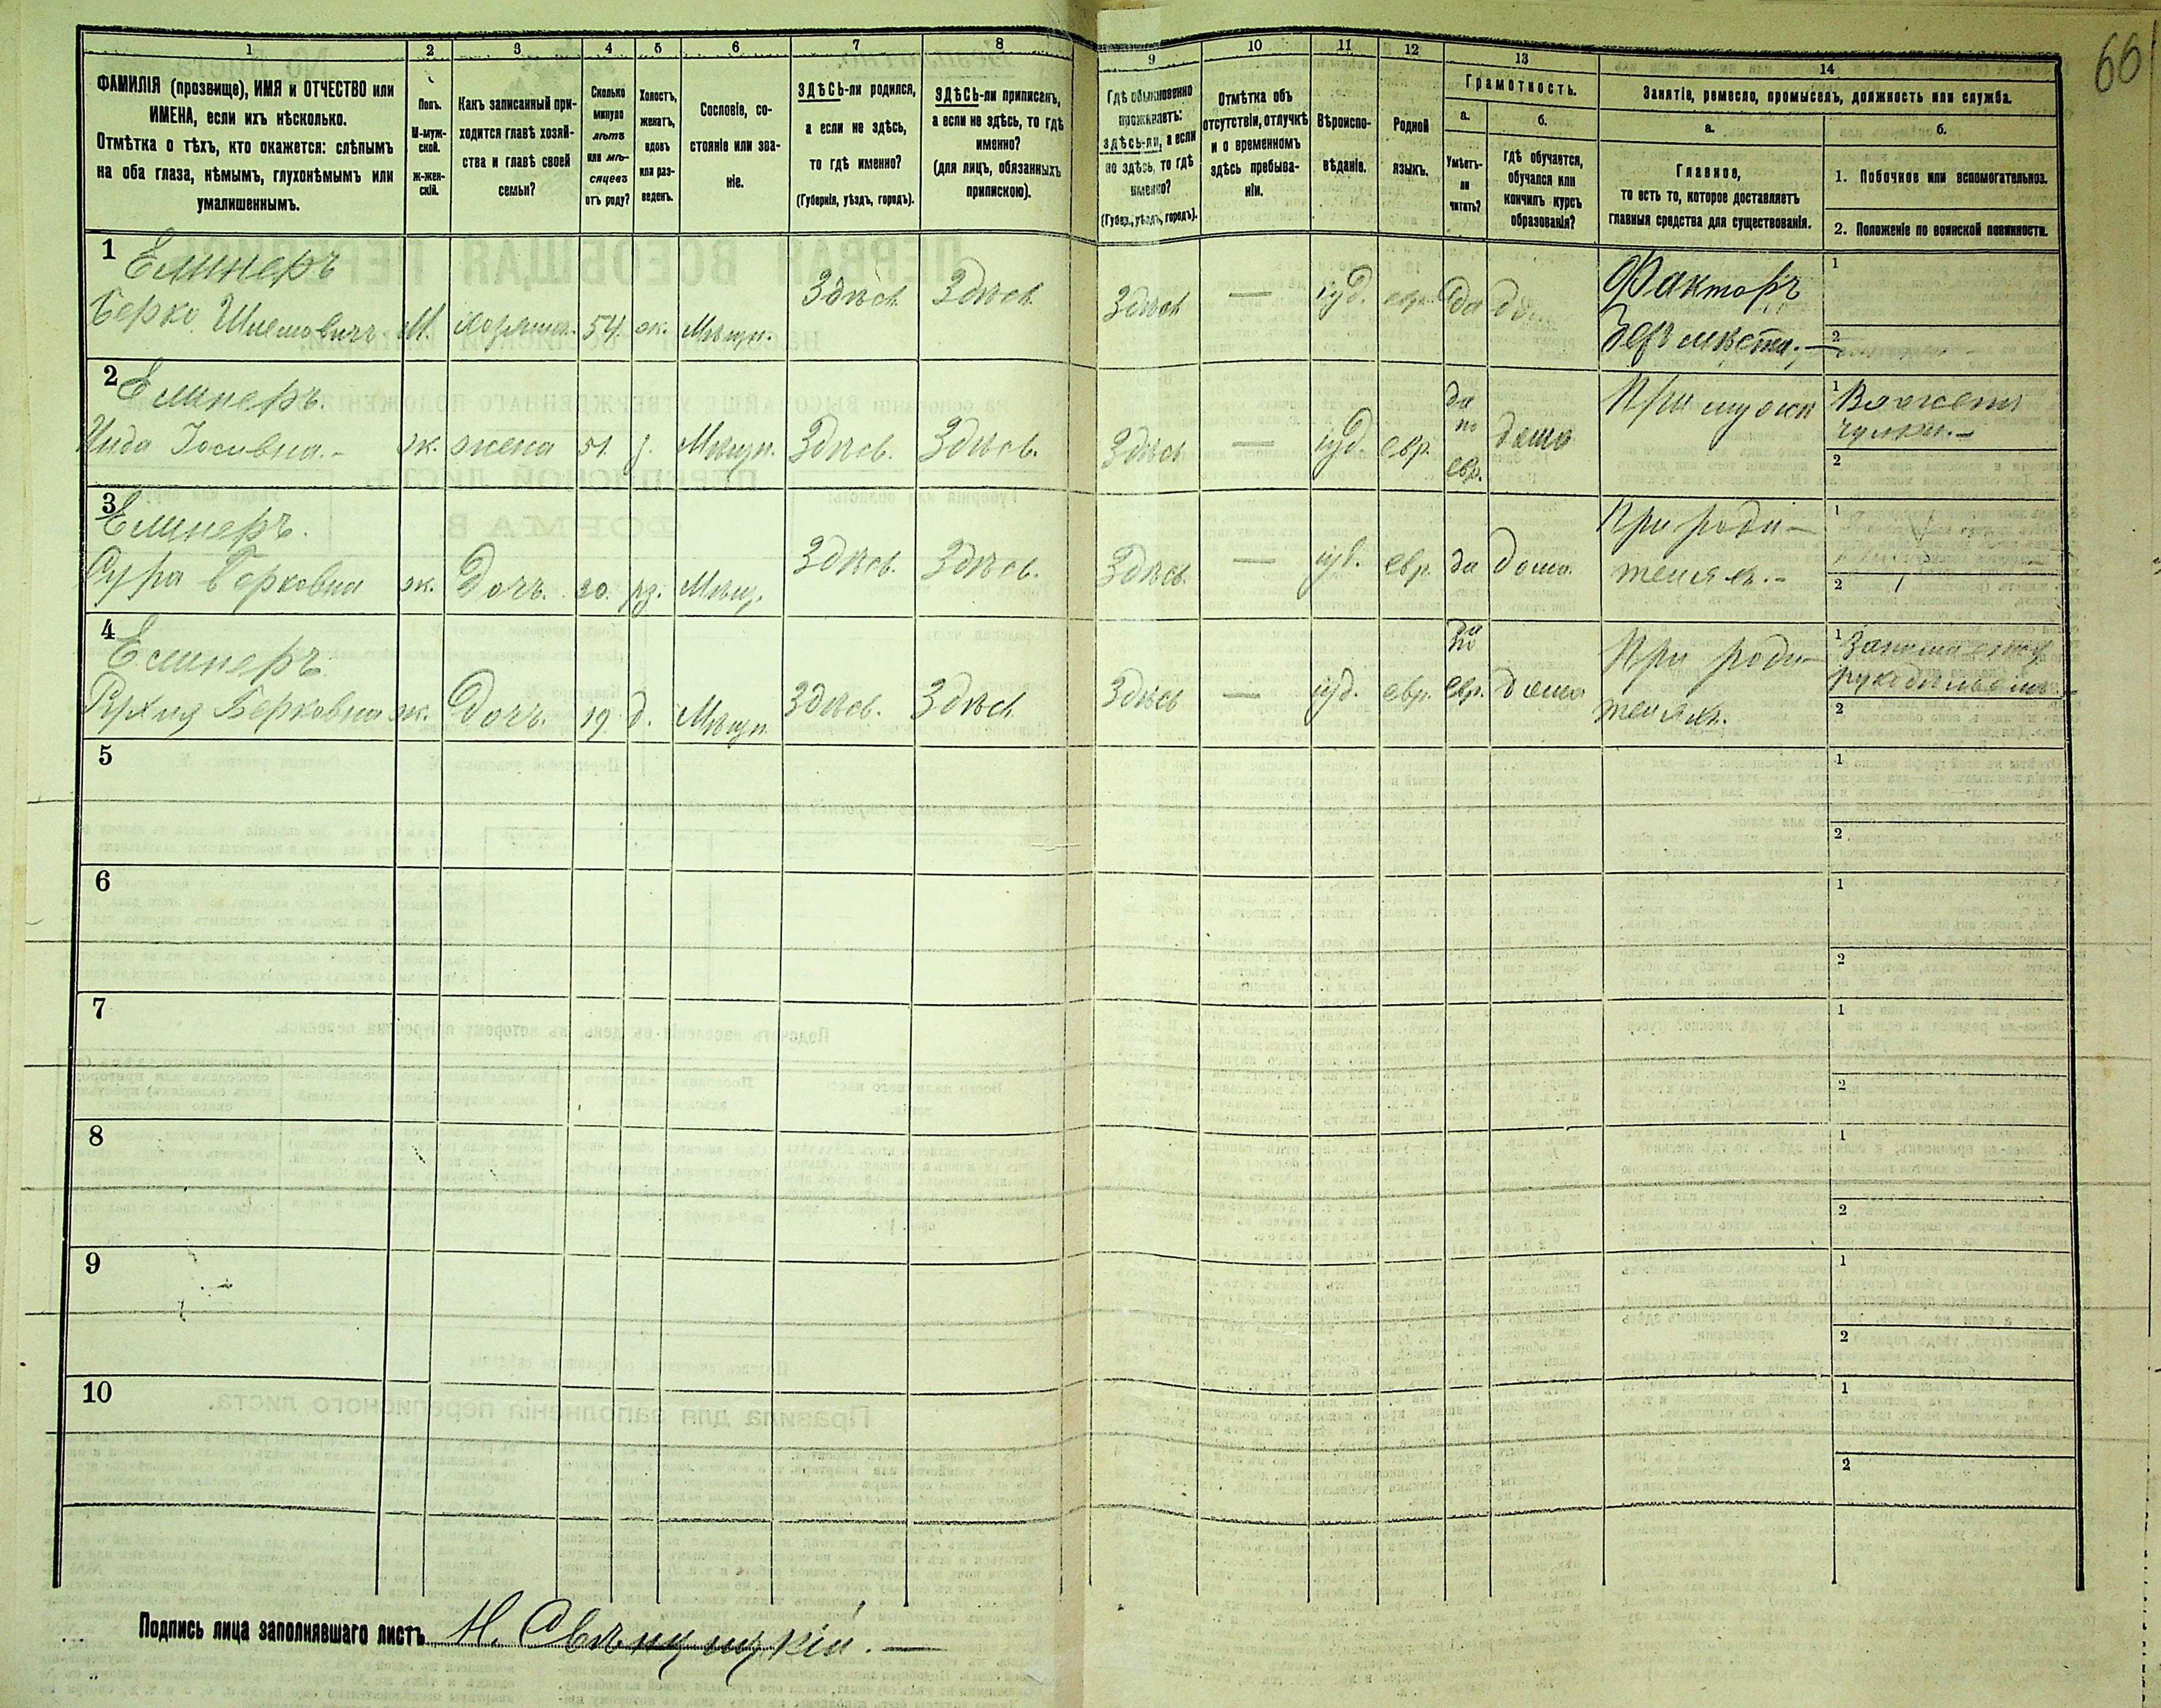 66
1 2 3 4 5 6 7 8 9 10 11 12 13 14
ФАМИЛІЯ (прозвище), ИМЯ и ОТЧЕСТВО или
ИМЕНА, если ихъ нѣсколько.
Отмѣтка о тѣхъ, кто окажется: слѣпымъ
на оба глаза, нѣмымъ, глухонѣмымъ или
умалишеннымъ.
Полъ.
М-муж-
ской.
Ж-жен-
скій.
Какъ записанный при-
ходится главѣ хозяй-
ства и главѣ своей
семьи?
Сколько
минуло
лѣтъ
или мѣ-
сяцевъ
отъ роду?
Холостъ,
женатъ,
вдовъ
или раз-
веденъ.
Сословіе, со-
стояніе или зва-
ніе.
ЗДѢСЬ-ли родился,
а если не здѣсь,
то гдѣ именно?
(Губернія, уѣздъ, городъ).
ЗДѢСЬ-ли приписанъ,
а если не здѣсь, то гдѣ
именно?
(для лицъ, обязанныхъ
припискою).
Гдѣ обыкновенно
проживаетъ:
здѣсь-ли, а если
не здѣсь, то гдѣ
именно?
(Губер., уѣздъ, городъ).
Отмѣтка объ
отсутствіи, отлучкѣ
и о временномъ
здѣсь пребыва-
ніи.
Вѣроиспо-
вѣданіе.
Родной
языкъ.
Грамотность.
а.
Умѣетъ-
ли
читать?
б.
гдѣ обучается,
обучался или
кончилъ курсъ
образованія?
Занятіе, ремесло, промыселъ, должность или служба.
а.
Главное,
то есть то, которое доставляетъ
главныя средства для существованія.
б.
1. Побочное или вспомогательное.
2. Положеніе по воинской повинности.
1 Елинеръ
Берко Шлемовичъ М. хозяинъ 54 ж. Мѣщн. Здѣсь Здѣсь Здѣсь — іуд. евр. да
Факторъ
безъ мѣста.—
1
2
2 Елинеръ.
Іосивна.- ж. жена 51. Мѣщн. Здѣсь. Здѣсь. Здѣсь — іуд евр.
да
по
евр.
дома
При мужѣ
1 Вяжетъ
чулки.—
2
3 Елинеръ.
Сура Берковна ж. Дочь. 20. рз. Мѣщ. Здѣсь. Здѣсь. Здѣсь — іуд. евр. да дома
При роди-
теляхъ.-
1
2
4 Елинеръ.
Рухля Берковна ж. Дочь. 19. д. Мѣщн Здѣсь. Здѣсь Здѣсь — іуд. евр.
да
по
евр. дома
При роди-
теляхъ.
1
рукодѣльемъ
2
5 1
2
6 1
2
7 1
2
8 1
2
9 1
2
10 1
2
Подпись лица заполнявшаго листъ Н.